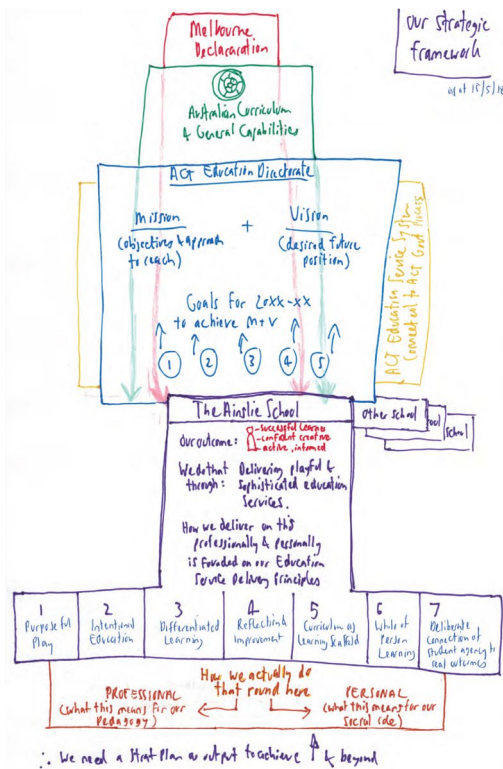 Melbourne
Declararation
Our strategic
framework
as at 15/5/18
Australian Curriculum
& General Capabilities
ACT Education Directorate
Mission
(objectives & approach
to reach)
+
Vission
(desired future
position)
Goals for 20XX-XX
to achieve M+V
1 2 3 4 5
ACT Education Service System
Connected to ACT Govt Process
The Ainslie School
other school
ool
school
Our outcome:
- successful learner
- confident creative
- active, informed
We do that
through:
Delivering playful &
sophisticated education
services.
How we deliver on this
professionally & personally
is founded on our Education
Service Delivery Principles
1
Purposeful
Play
2
Intentional
Education
3
Differentiated
Learning
4
Reflection &
Improvement
5
Curriculum as
Learning Scaffold
6
Whole of
Person
Learning
7
Deliberate
Connection of
student agency to
real outcomes
How we actually do
that round here
PROFESSIONAL
(what this means for our
Pedagogy)
PERSONAL
(what this means for our
social role)
∴ We need a Strat Plan as output to achieve ↑ & beyond